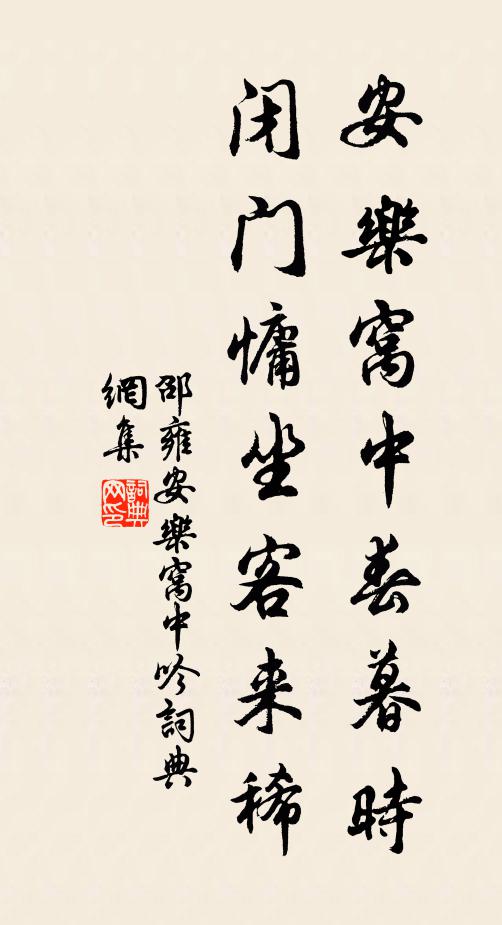 安樂窩中春暮時
閉門慵坐客来稀
邵雍安樂窩中吟詞典
網集
詞典
网印